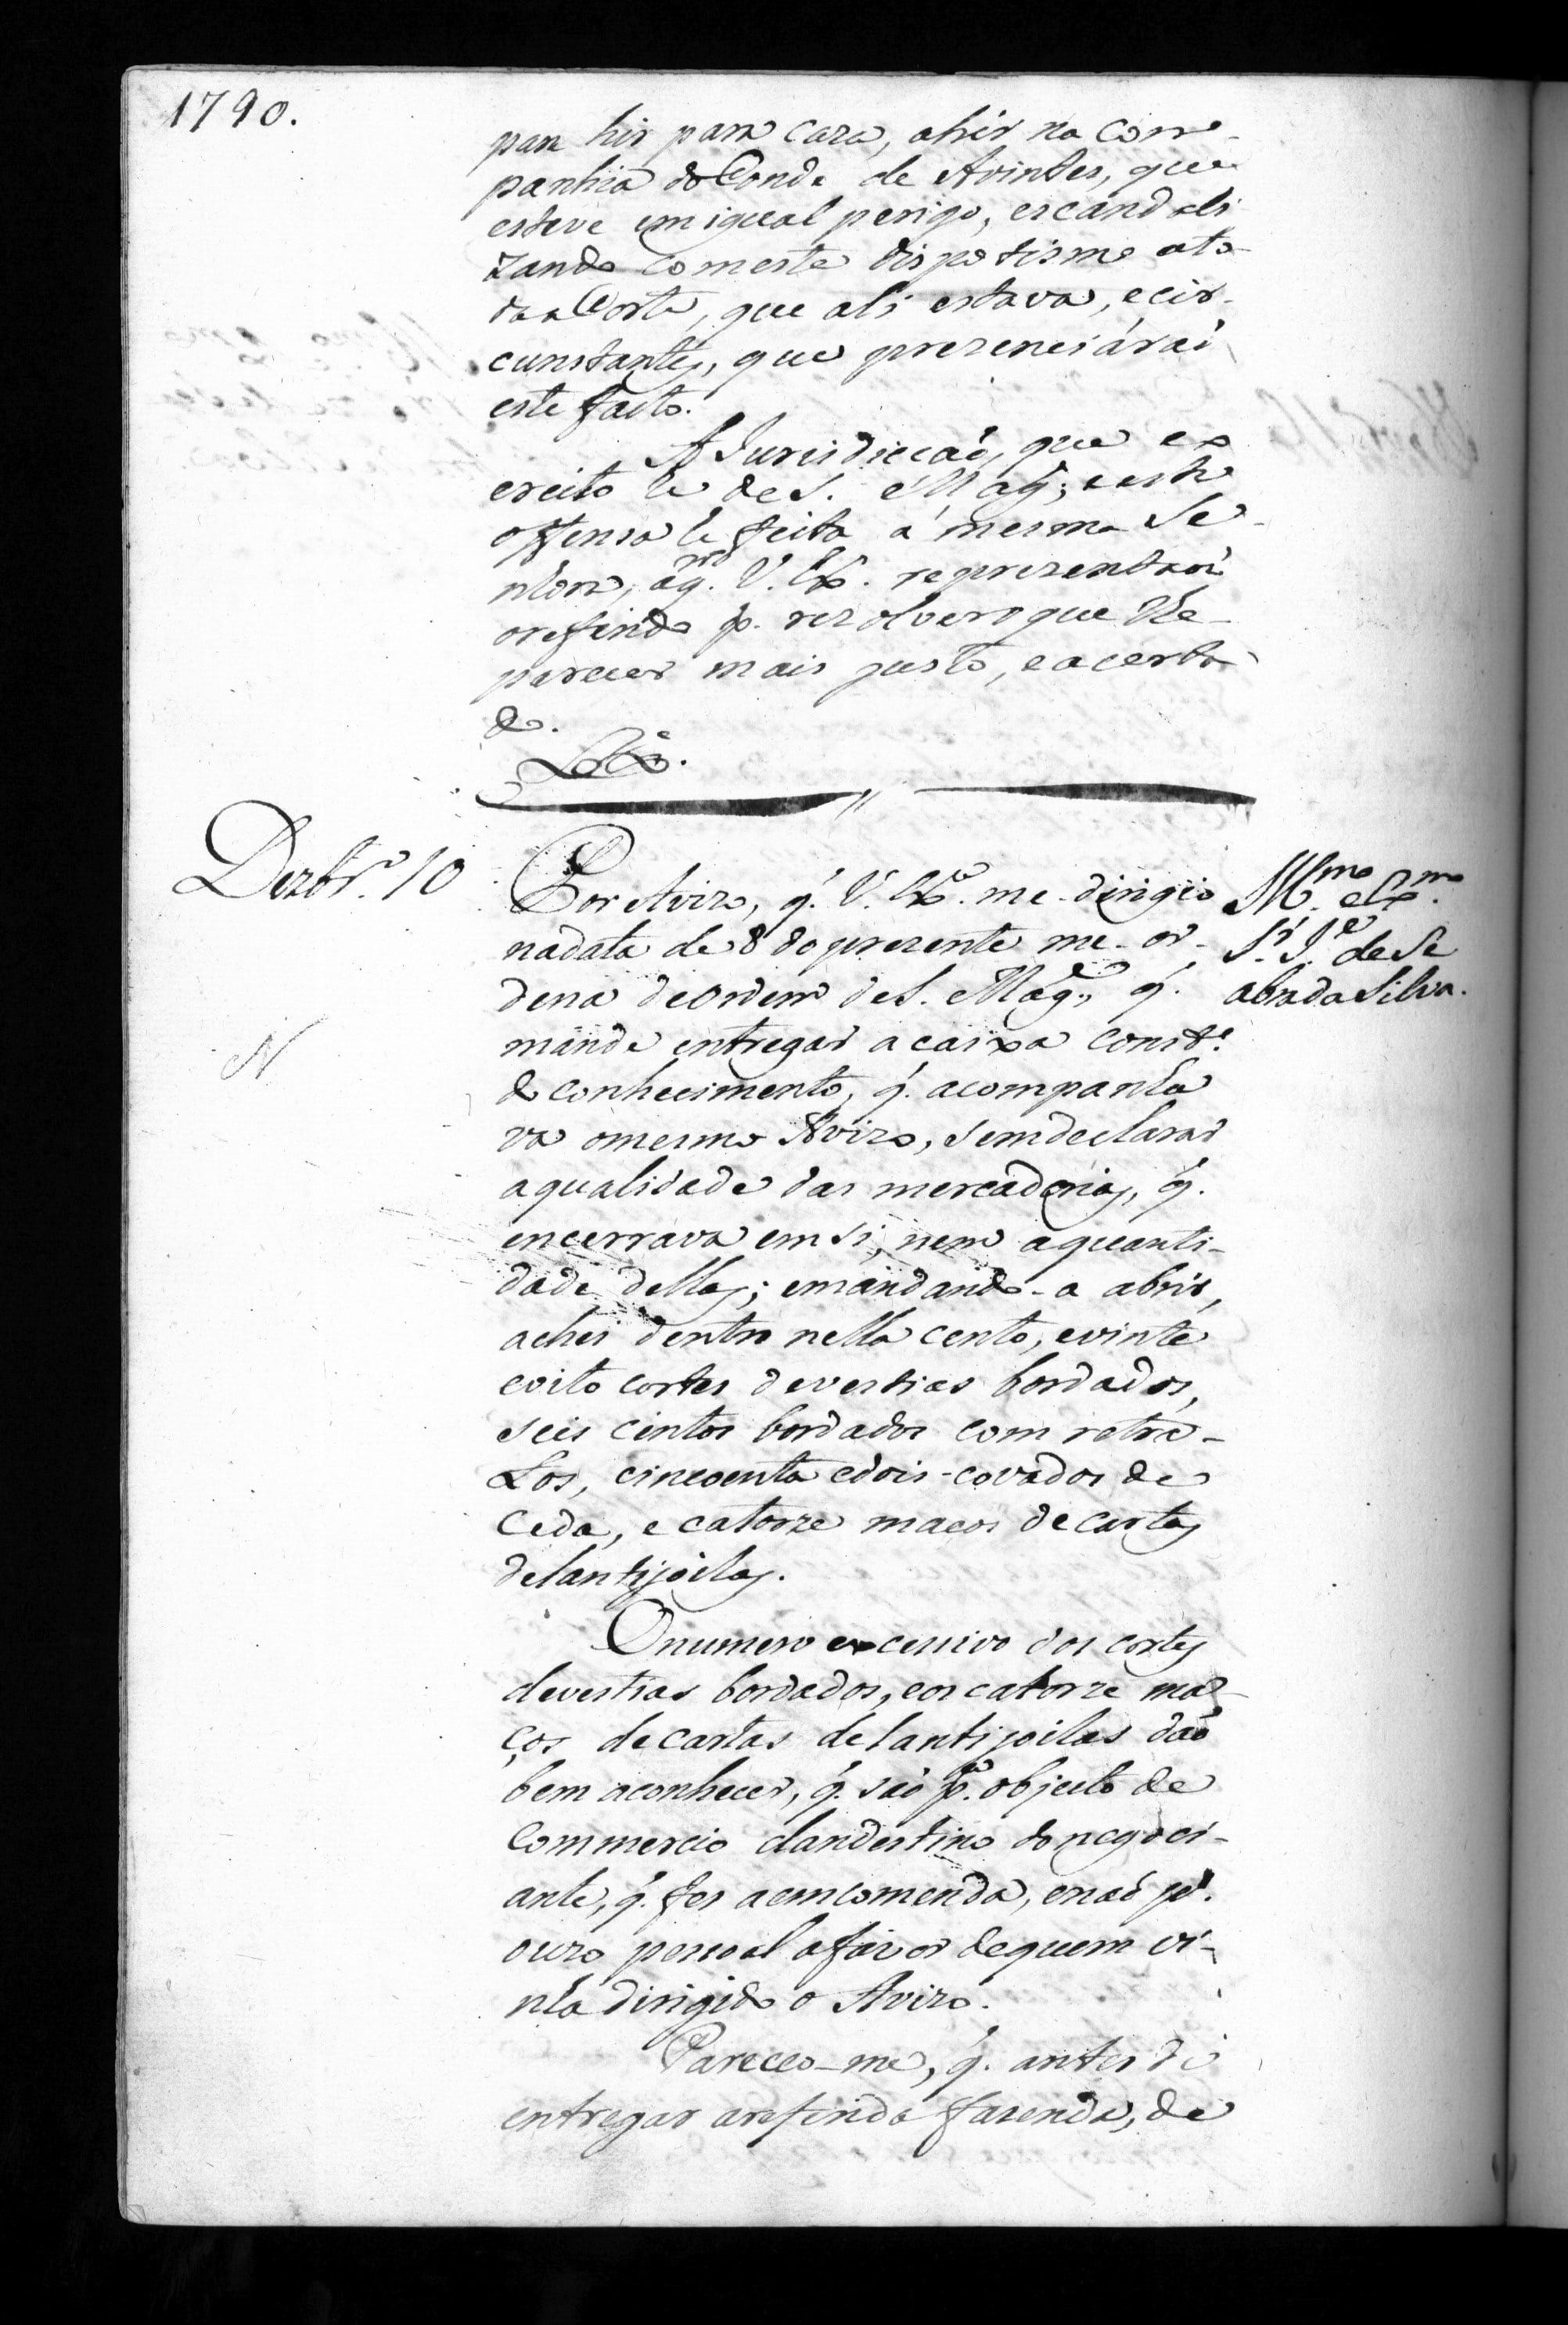 1790.
para hir para caza, a hir na com-
panhia do Conde de Avintes, que
esteve em igual perigo, escandali
zando com este dispotismo a to-
da a Corte, que ali estava, e cir-
cunstantes, que prezenciárão
este facto.
A Jurisdicção, que ex
ercito he de S. Mag.e; e esta
offensa he feita á mesma Se-
nhora, a q.m V. Ex.a representará
o referido p.a rezolver o que lhe
parecer mais justo, e acerta
do.
Dezbr.o 10
Por Avizo, q. V. Ex.a me dirigio
na data de 8 do prezente me or-
dena de Ordem de S. Mag.e, q.
mande entregar a caixa const.e
do conhecimento, q. acompanha
va o mesmo Avizo, sem declarar
a qualidade das mercadorias, q.
encerrava em si, nem a quanti-
dade dellas; e mandando-a abrir,
achei dentro nella cento, e vinte
e oito cortes de vestias bordados,
seis cintos bordados com retro-
zos, cincoenta e dois covados de
Ceda, e catorze maços de cartas
de lantijoilas.
Ill.mo e Ex.mo
S.r J.e de Se
abra da Silva.
N
O numero excessivo dos cortes
de vestias bordados, e os catorze ma-
ços de cartas de lantijoilas dão
bem a conhecer, q. são p.a objecto de
Commercio clandestino do negoci-
ante, q. fes a emcomenda, e não p.a
o uzo pessoal a favor de quem vi-
nha dirigido o Avizo.
Pareceo-me, q. antes de
entregar a referida fazenda, de